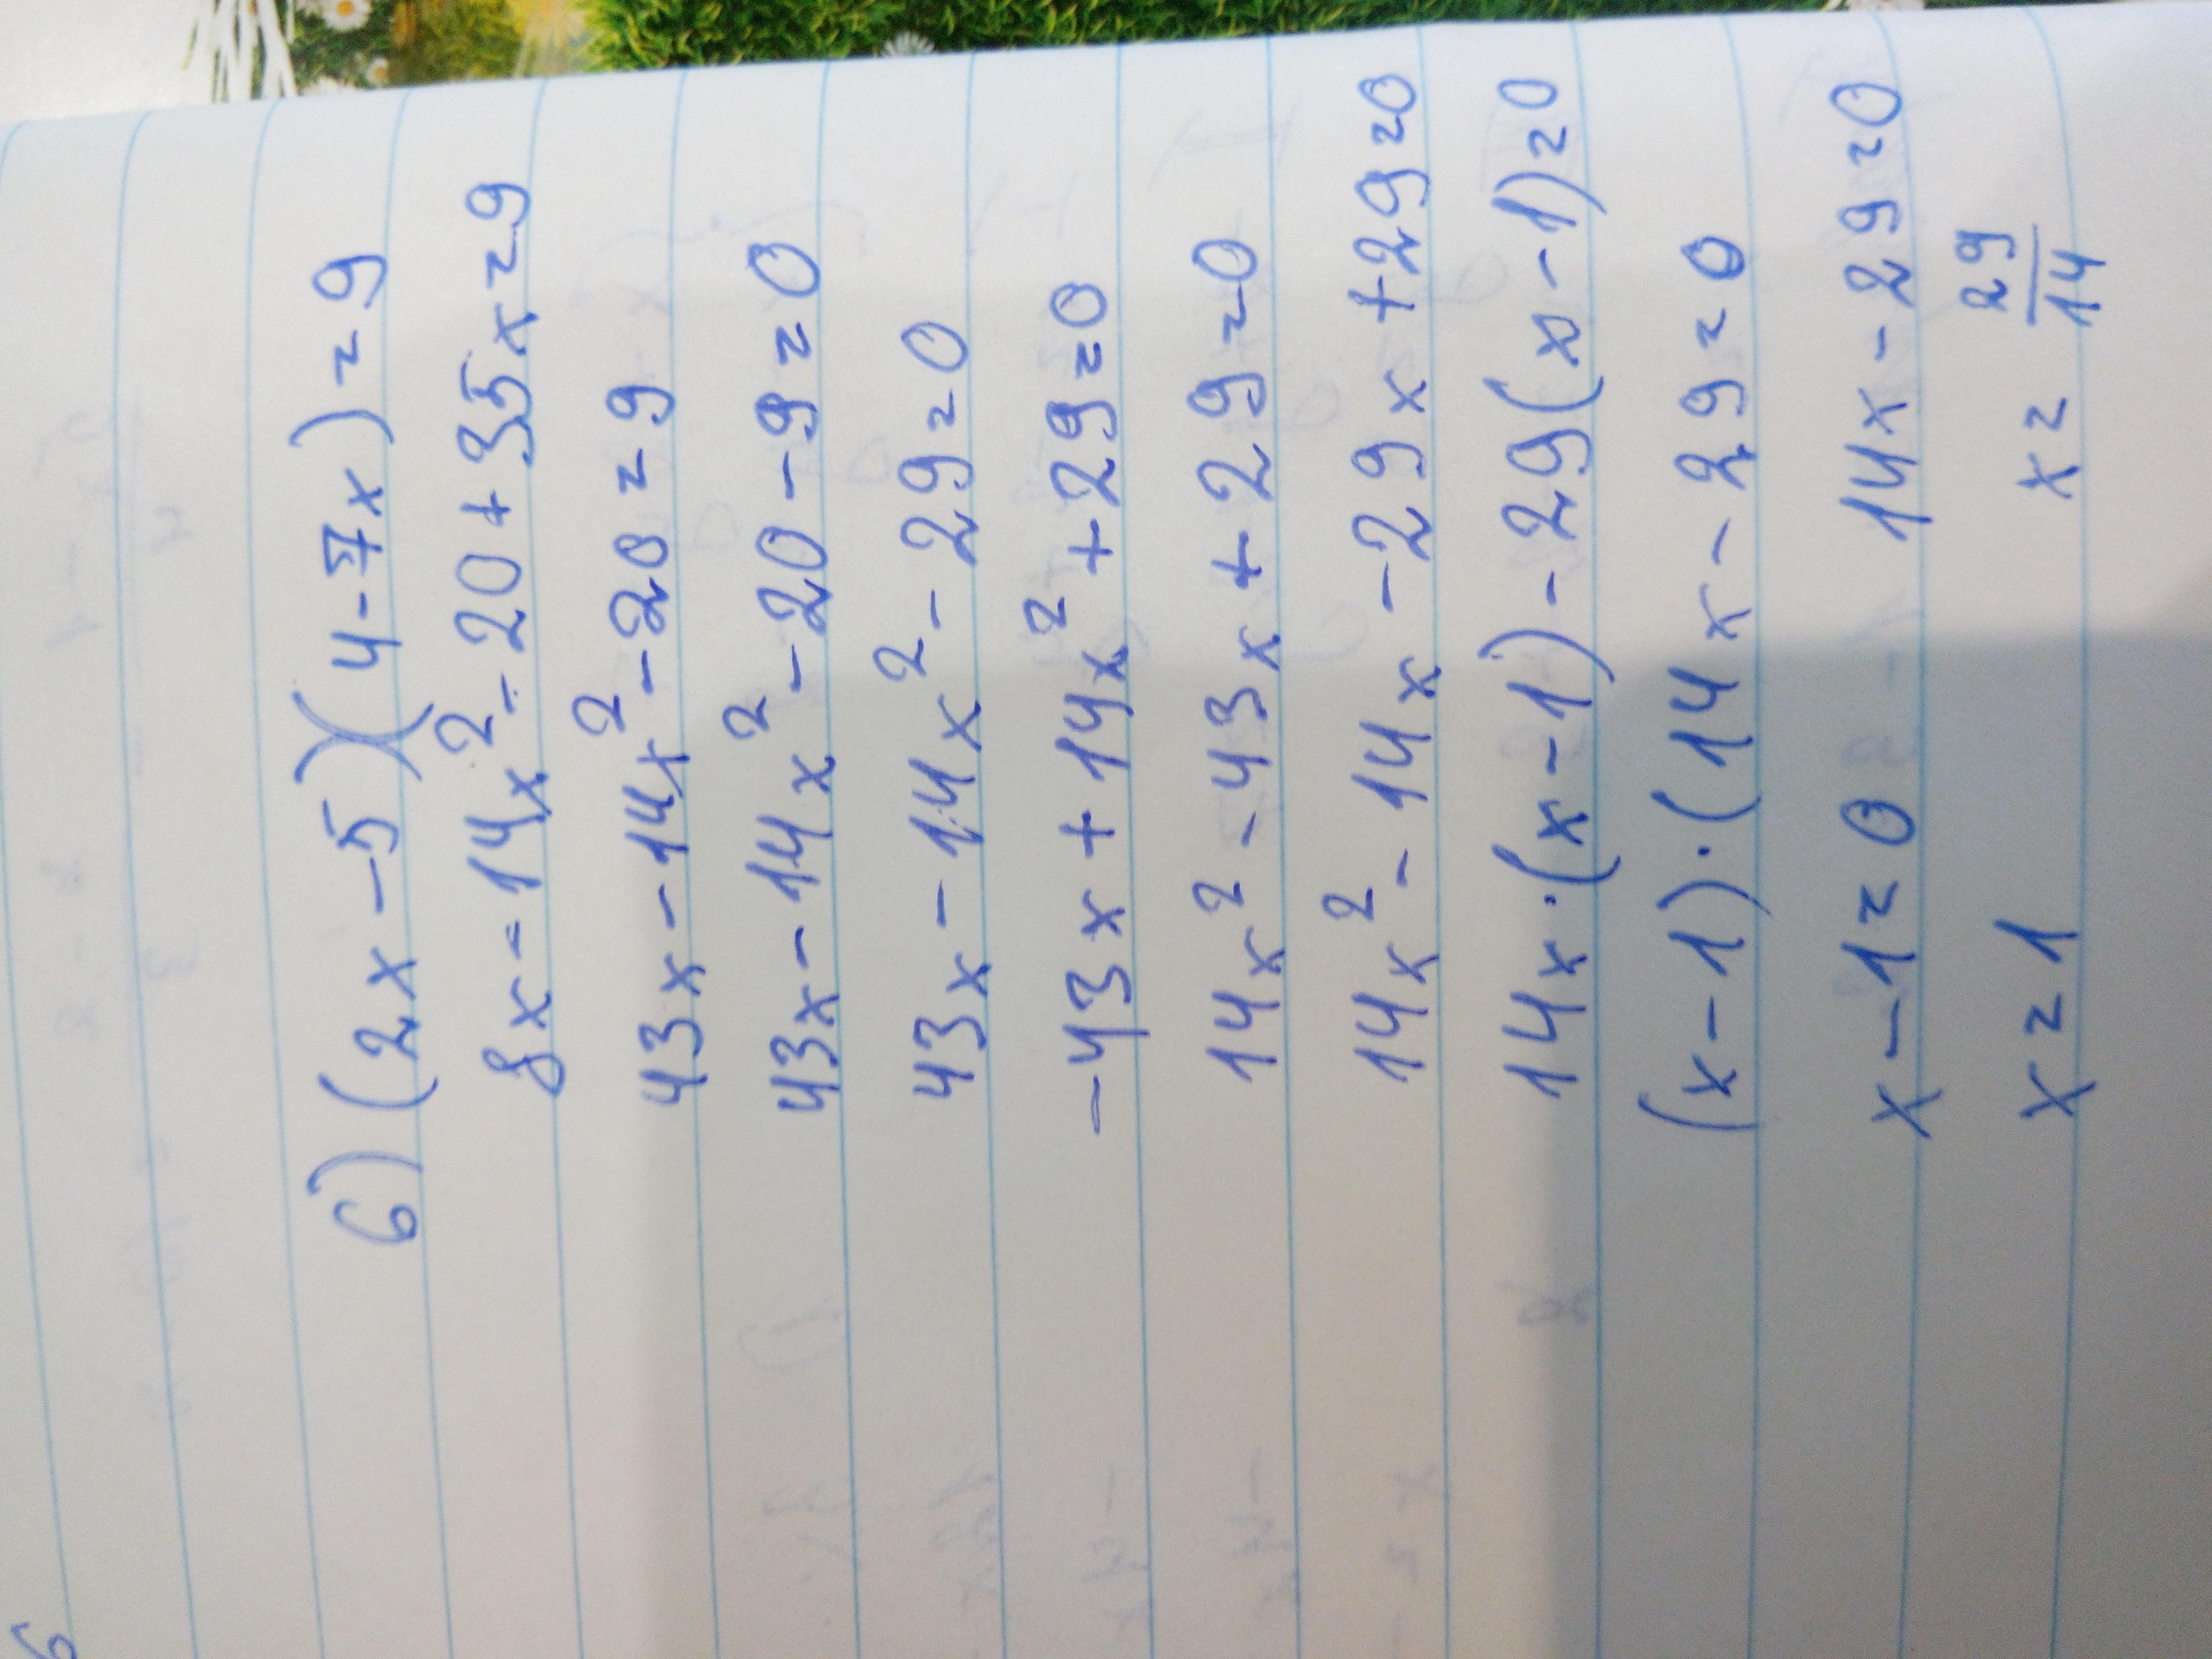 б) (2x-5)(4-7x)=9
8x-14x²-20+35x=9
43x-14x²-20=9
43x-14x²-20-9=0
43x-14x²-29=0
-43x+14x²+29=0
14x²-43x+29=0
14x²-14x-29x+29=0
14x·(x-1)-29(x-1)=0
(x-1)·(14x-29=0
x-1=0 14x-29=0
x=1 x=29/14